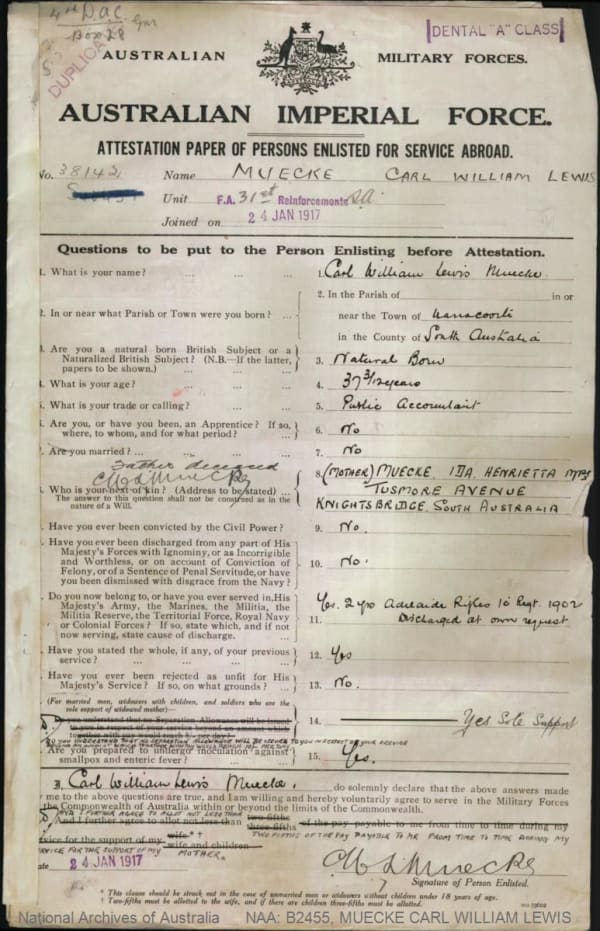 4th D.a.c.
Box 28
DUPLICA
DENTAL "A" CLASS
AUSTRALIAN MILITARY FORCES.
AUSTRALIAN IMPERIAL FORCE.
ATTESTATION PAPER OF PERSONS ENLISTED FOR SERVICE ABROAD.
No. 38142 Name MUECKE CARL WILLIAM LEWIS
Unit F.A. 31st Reinforcements S.A.
Joined on 24 JAN 1917
Questions to be put to the Person Enlisting before Attestation.
1. What is your name? ... ... ... 1. Carl William Lewis Muecke
2. In or near what Parish or Town were you born? ... 2. In the Parish of in or
near the Town of Narracoorte
in the County of South Australia
3. Are you a natural born British Subject or a
Naturalized British Subject? (N.B.—If the latter,
papers to be shown.) ... ... ... 3. Natural Born
4. What is your age? ... ... ... 4. 37 3/12 years
5. What is your trade or calling? ... ... ... 5. Public Accountant
6. Are you, or have you been, an Apprentice? If so,
where, to whom, and for what period? ... 6. No
7. Are you married? ... ... ... 7. No
Father deceased
C W L Muecke
8. Who is your next of kin? (Address to be stated) ...
The answer to this question shall not be construed as in the
nature of a Will.
8. (MOTHER) MUECKE IDA HENRIETTA MRS
TUSMORE AVENUE
KNIGHTSBRIDGE, SOUTH AUSTRALIA
9. Have you ever been convicted by the Civil Power? 9. No.
Have you ever been discharged from any part of His
Majesty's Forces with Ignominy, or as Incorrigible
and Worthless, or on account of Conviction of
Felony, or of a Sentence of Penal Servitude, or have
you been dismissed with disgrace from the Navy? 10. No.
Do you now belong to, or have you ever served in, His
Majesty's Army, the Marines, the Militia, the
Militia Reserve, the Territorial Force, Royal Navy
or Colonial Forces? If so, state which, and if not
now serving, state cause of discharge. ...
11. Yes. 2 yrs Adelaide Rifles 10 Regt. 1902
Discharged at own request
Have you stated the whole, if any, of your previous
service? ... ... ... 12. Yes
Have you ever been rejected as unfit for His
Majesty's Service? If so, on what grounds? ... 13. No.
(For married men, widowers with children, and soldiers who are the
sole support of widowed mother)—
Do you understand that no Separation Allowance will be issued
to you in respect of your service beyond an amount which
together with pay would reach 8/- per day?
14. Yes Sole Support
DO YOU UNDERSTAND THAT NO SEPARATION ALLOWANCE WILL BE ISSUED TO YOU IN RESPECT OF YOUR SERVICE
Are you prepared to undergo inoculation against
smallpox and enteric fever? ... 15. Yes.
I, Carl William Lewis Muecke, do solemnly declare that the above answers made
me to the above questions are true, and I am willing and hereby voluntarily agree to serve in the Military Forces
the Commonwealth of Australia within or beyond the limits of the Commonwealth.
AND I FURTHER AGREE TO ALLOT NOT LESS THAN
And I further agree to allot not less than two-fifths three-fifths of the pay payable to me from time to time during my
TWO FIFTHS OF THE PAY PAYABLE TO ME FROM TIME TO TIME DURING MY
service for the support of my wife*† wife and children
SERVICE FOR THE SUPPORT OF MY MOTHER.
Date 24 JAN 1917
C W L Muecke
Signature of Person Enlisted.
* This clause should be struck out in the case of unmarried men or widowers without children under 18 years of age.
† Two-fifths must be allotted to the wife, and if there are children three-fifths must be allotted.
National Archives of Australia NAA: B2455, MUECKE CARL WILLIAM LEWIS